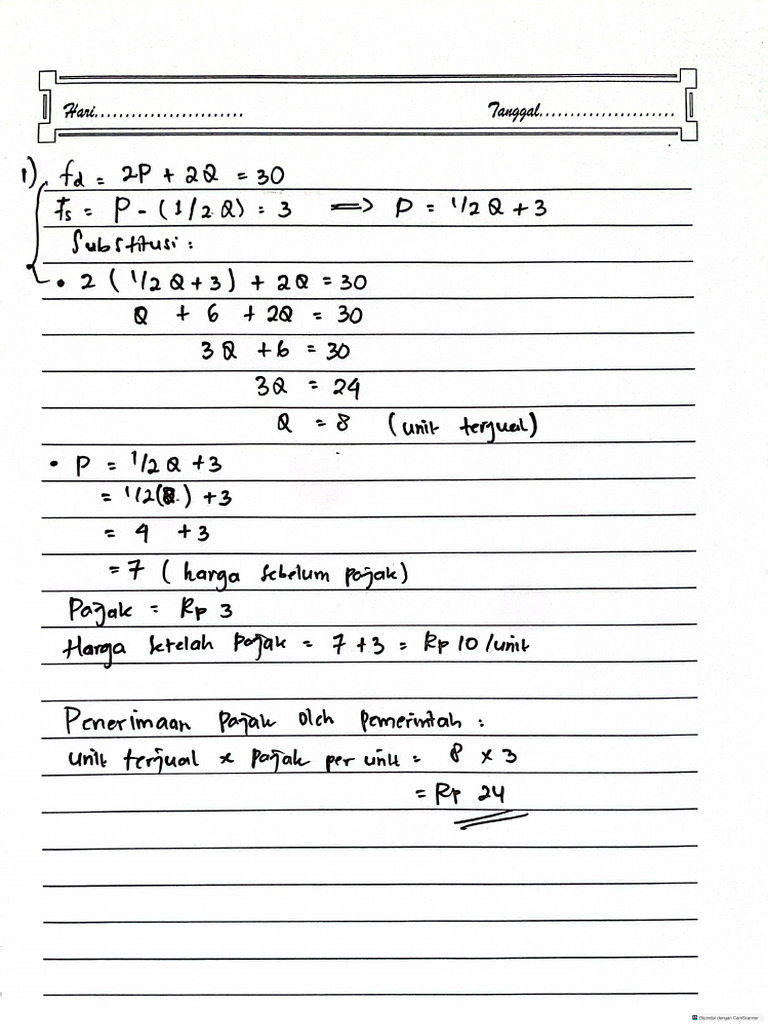 Hari........................ Tanggal......................
1) fd = 2P + 2Q = 30
fs = P - (1/2 Q) = 3 => P = 1/2 Q + 3
Substitusi :
• 2 ( 1/2 Q + 3 ) + 2Q = 30
Q + 6 + 2Q = 30
3Q + 6 = 30
3Q = 24
Q = 8 (unit terjual)
• P = 1/2 Q + 3
= 1/2(8) + 3
= 4 + 3
= 7 ( harga sebelum pajak)
Pajak = Rp 3
Harga setelah pajak = 7 + 3 = Rp 10 /unit
Penerimaan pajak oleh pemerintah :
unit terjual x pajak per unit = 8 x 3
= Rp 24
Dipindai dengan CamScanner